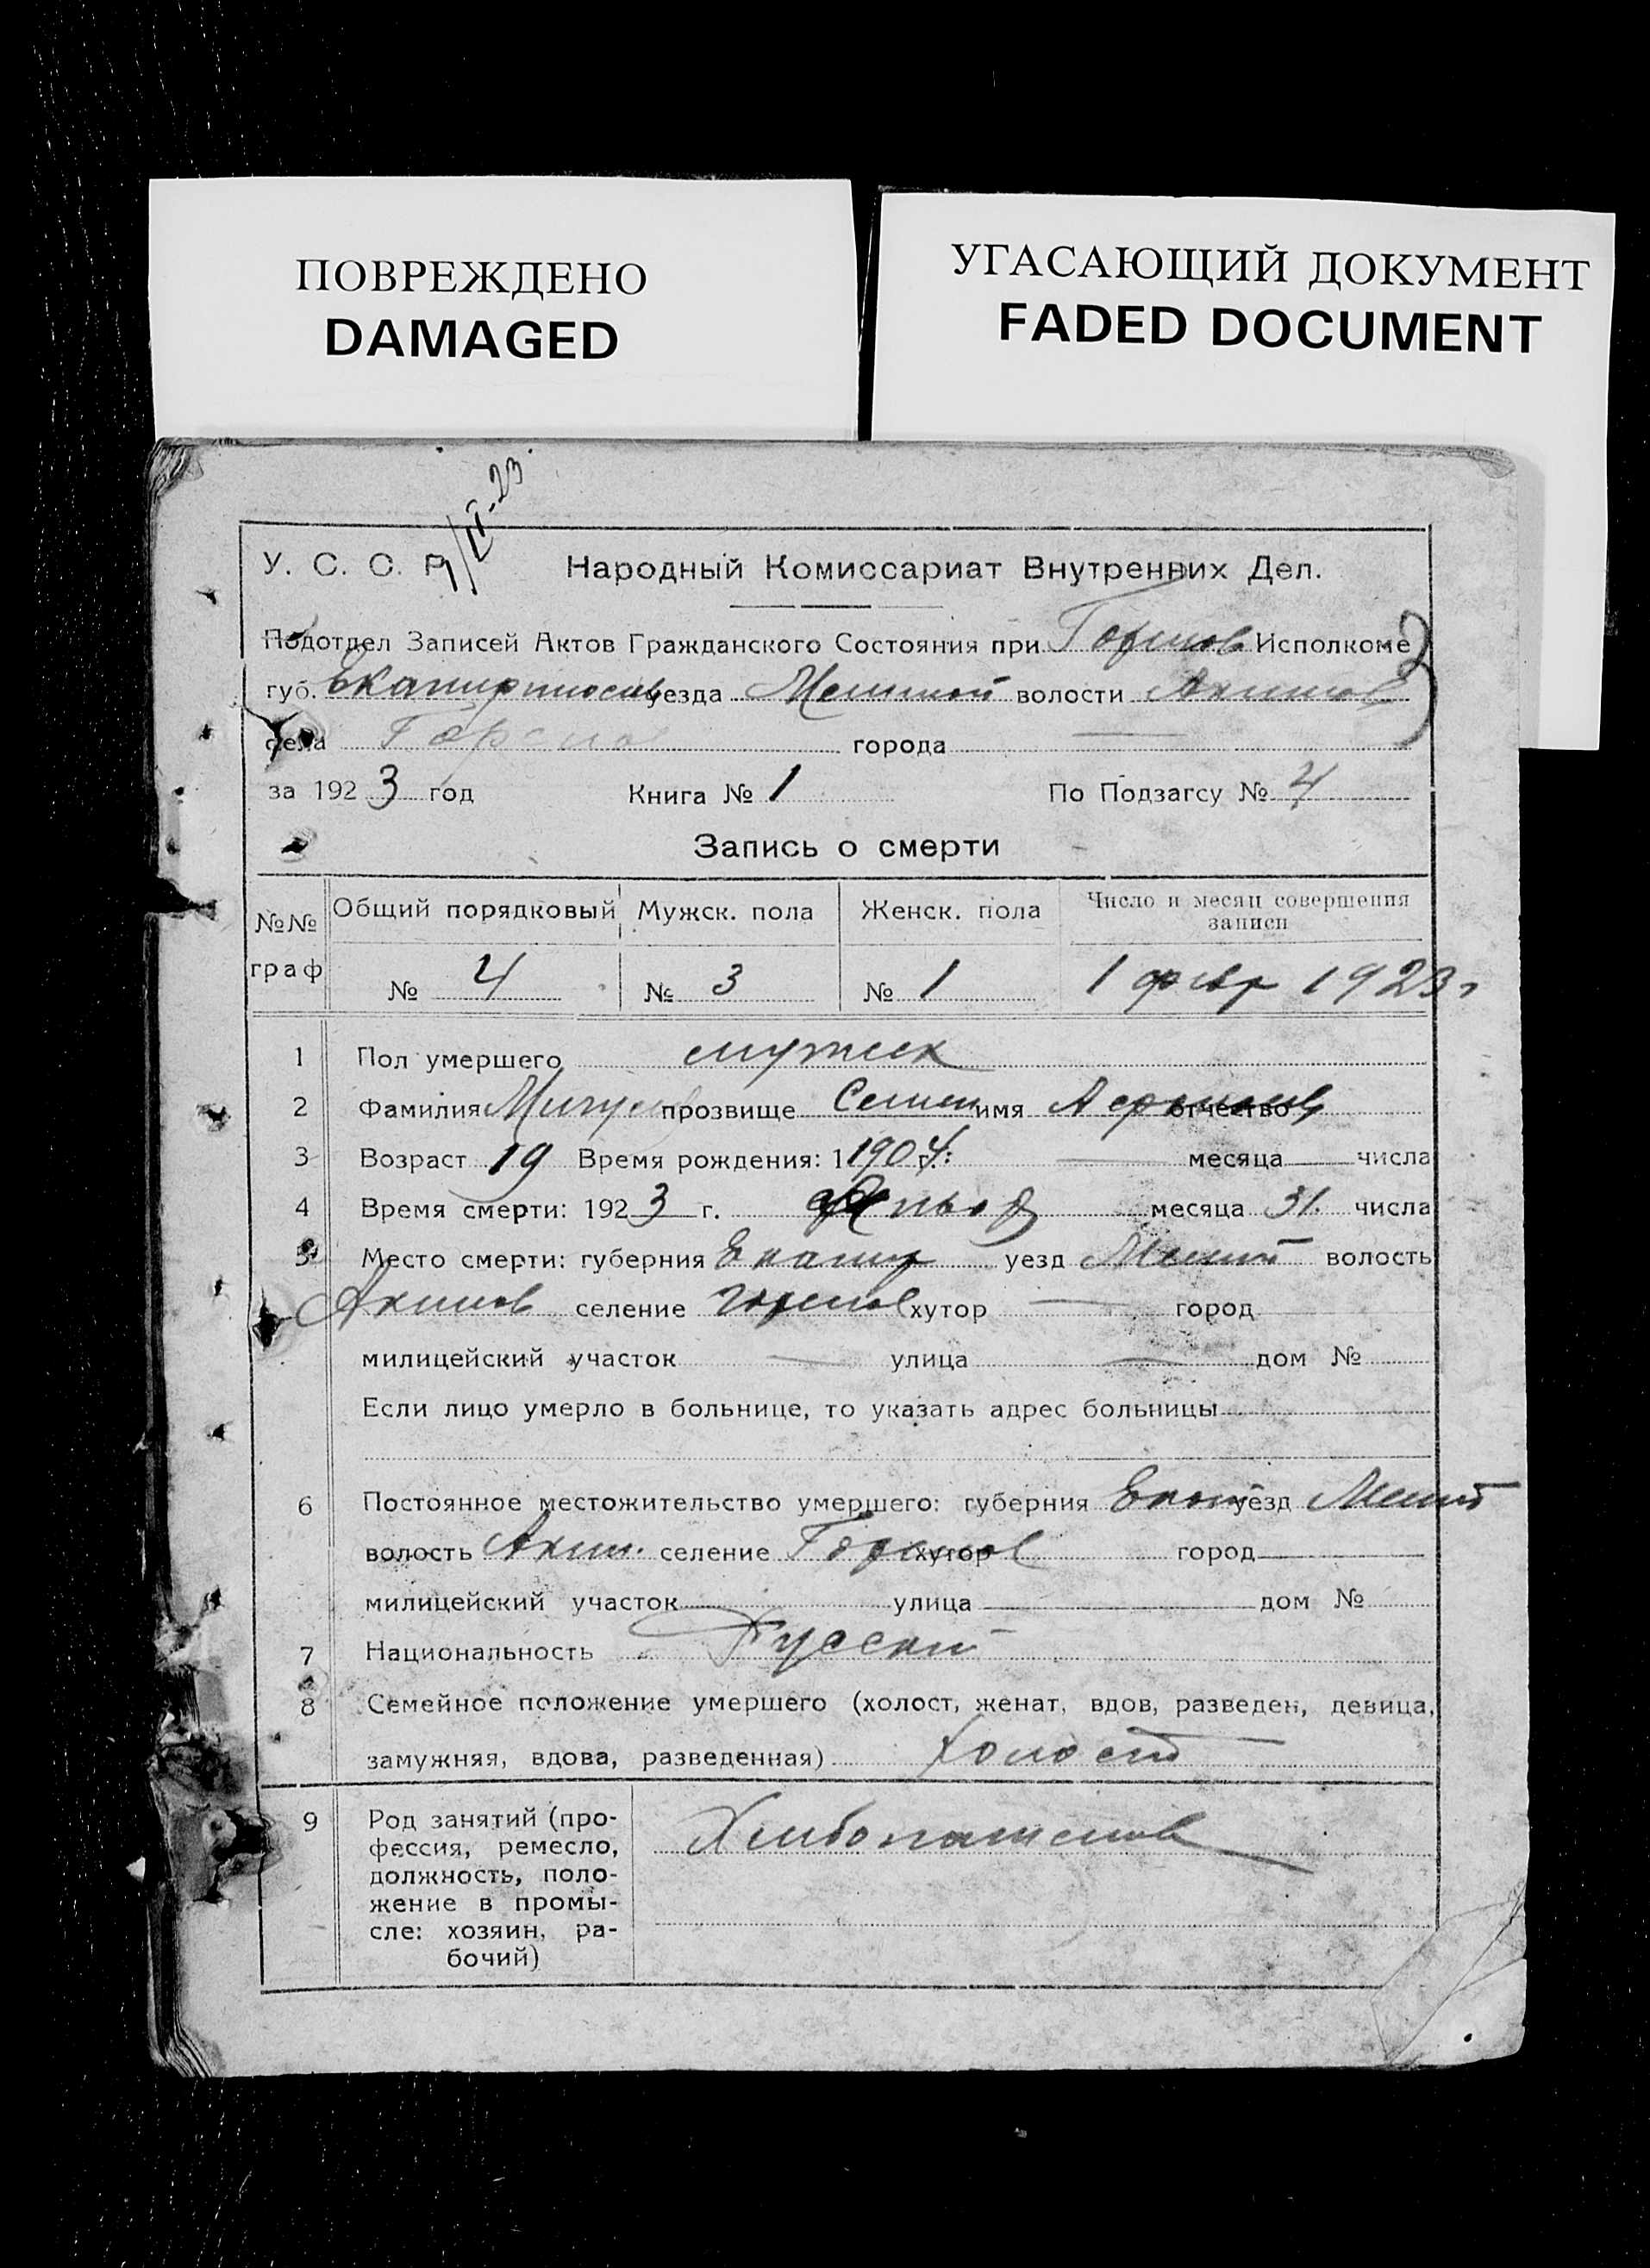 ПОВРЕЖДЕНО
DAMAGED
УГАСАЮЩИЙ ДОКУМЕНТ
FADED DOCUMENT
1/II-23.
У. С. С. Р. Народный Комиссариат Внутренних Дел.
Подотдел Записей Актов Гражданского Состояния при Исполкоме
губ. уезда волости
села города
за 1923 год Книга № 1 По Подзагсу № 4
Запись о смерти
№№ граф Общий порядковый Мужск. пола Женск. пола Число и месяц совершения записи
№ 4 № 3 № 1 1 февр 1923 г
1 Пол умершего мужск
2 Фамилия прозвище Семен имя отчество
3 Возраст 19 Время рождения: 1 1904 г. месяца числа
4 Время смерти: 1923 г. месяца 31. числа
5 Место смерти: губерния Екатир уезд волость
Акимов селение хутор город
милицейский участок улица дом №
Если лицо умерло в больнице, то указать адрес больницы
6 Постоянное местожительство умершего: губерния уезд
волость Аким. селение хутор город
милицейский участок улица дом №
7 Национальность Русский
8 Семейное положение умершего (холост, женат, вдов, разведен, девица,
замужняя, вдова, разведенная) Холост
9 Род занятий (про-
фессия, ремесло,
должность, поло-
жение в промы-
сле: хозяин, ра-
бочий)